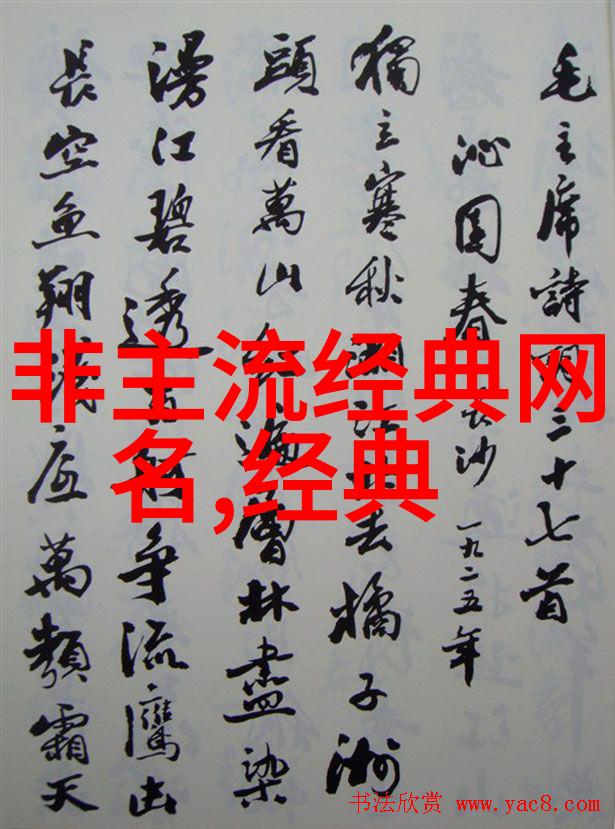 毛主席詩詞三十七首
沁園春 長沙 一九二五年
獨立寒秋湘江北去橘子洲
頭看萬山紅遍層林盡染
漫江碧透百舸争流鷹击
長空魚翔淺底萬類霜天
非主流经典网
名,经典
书法欣赏 www.yac8.com